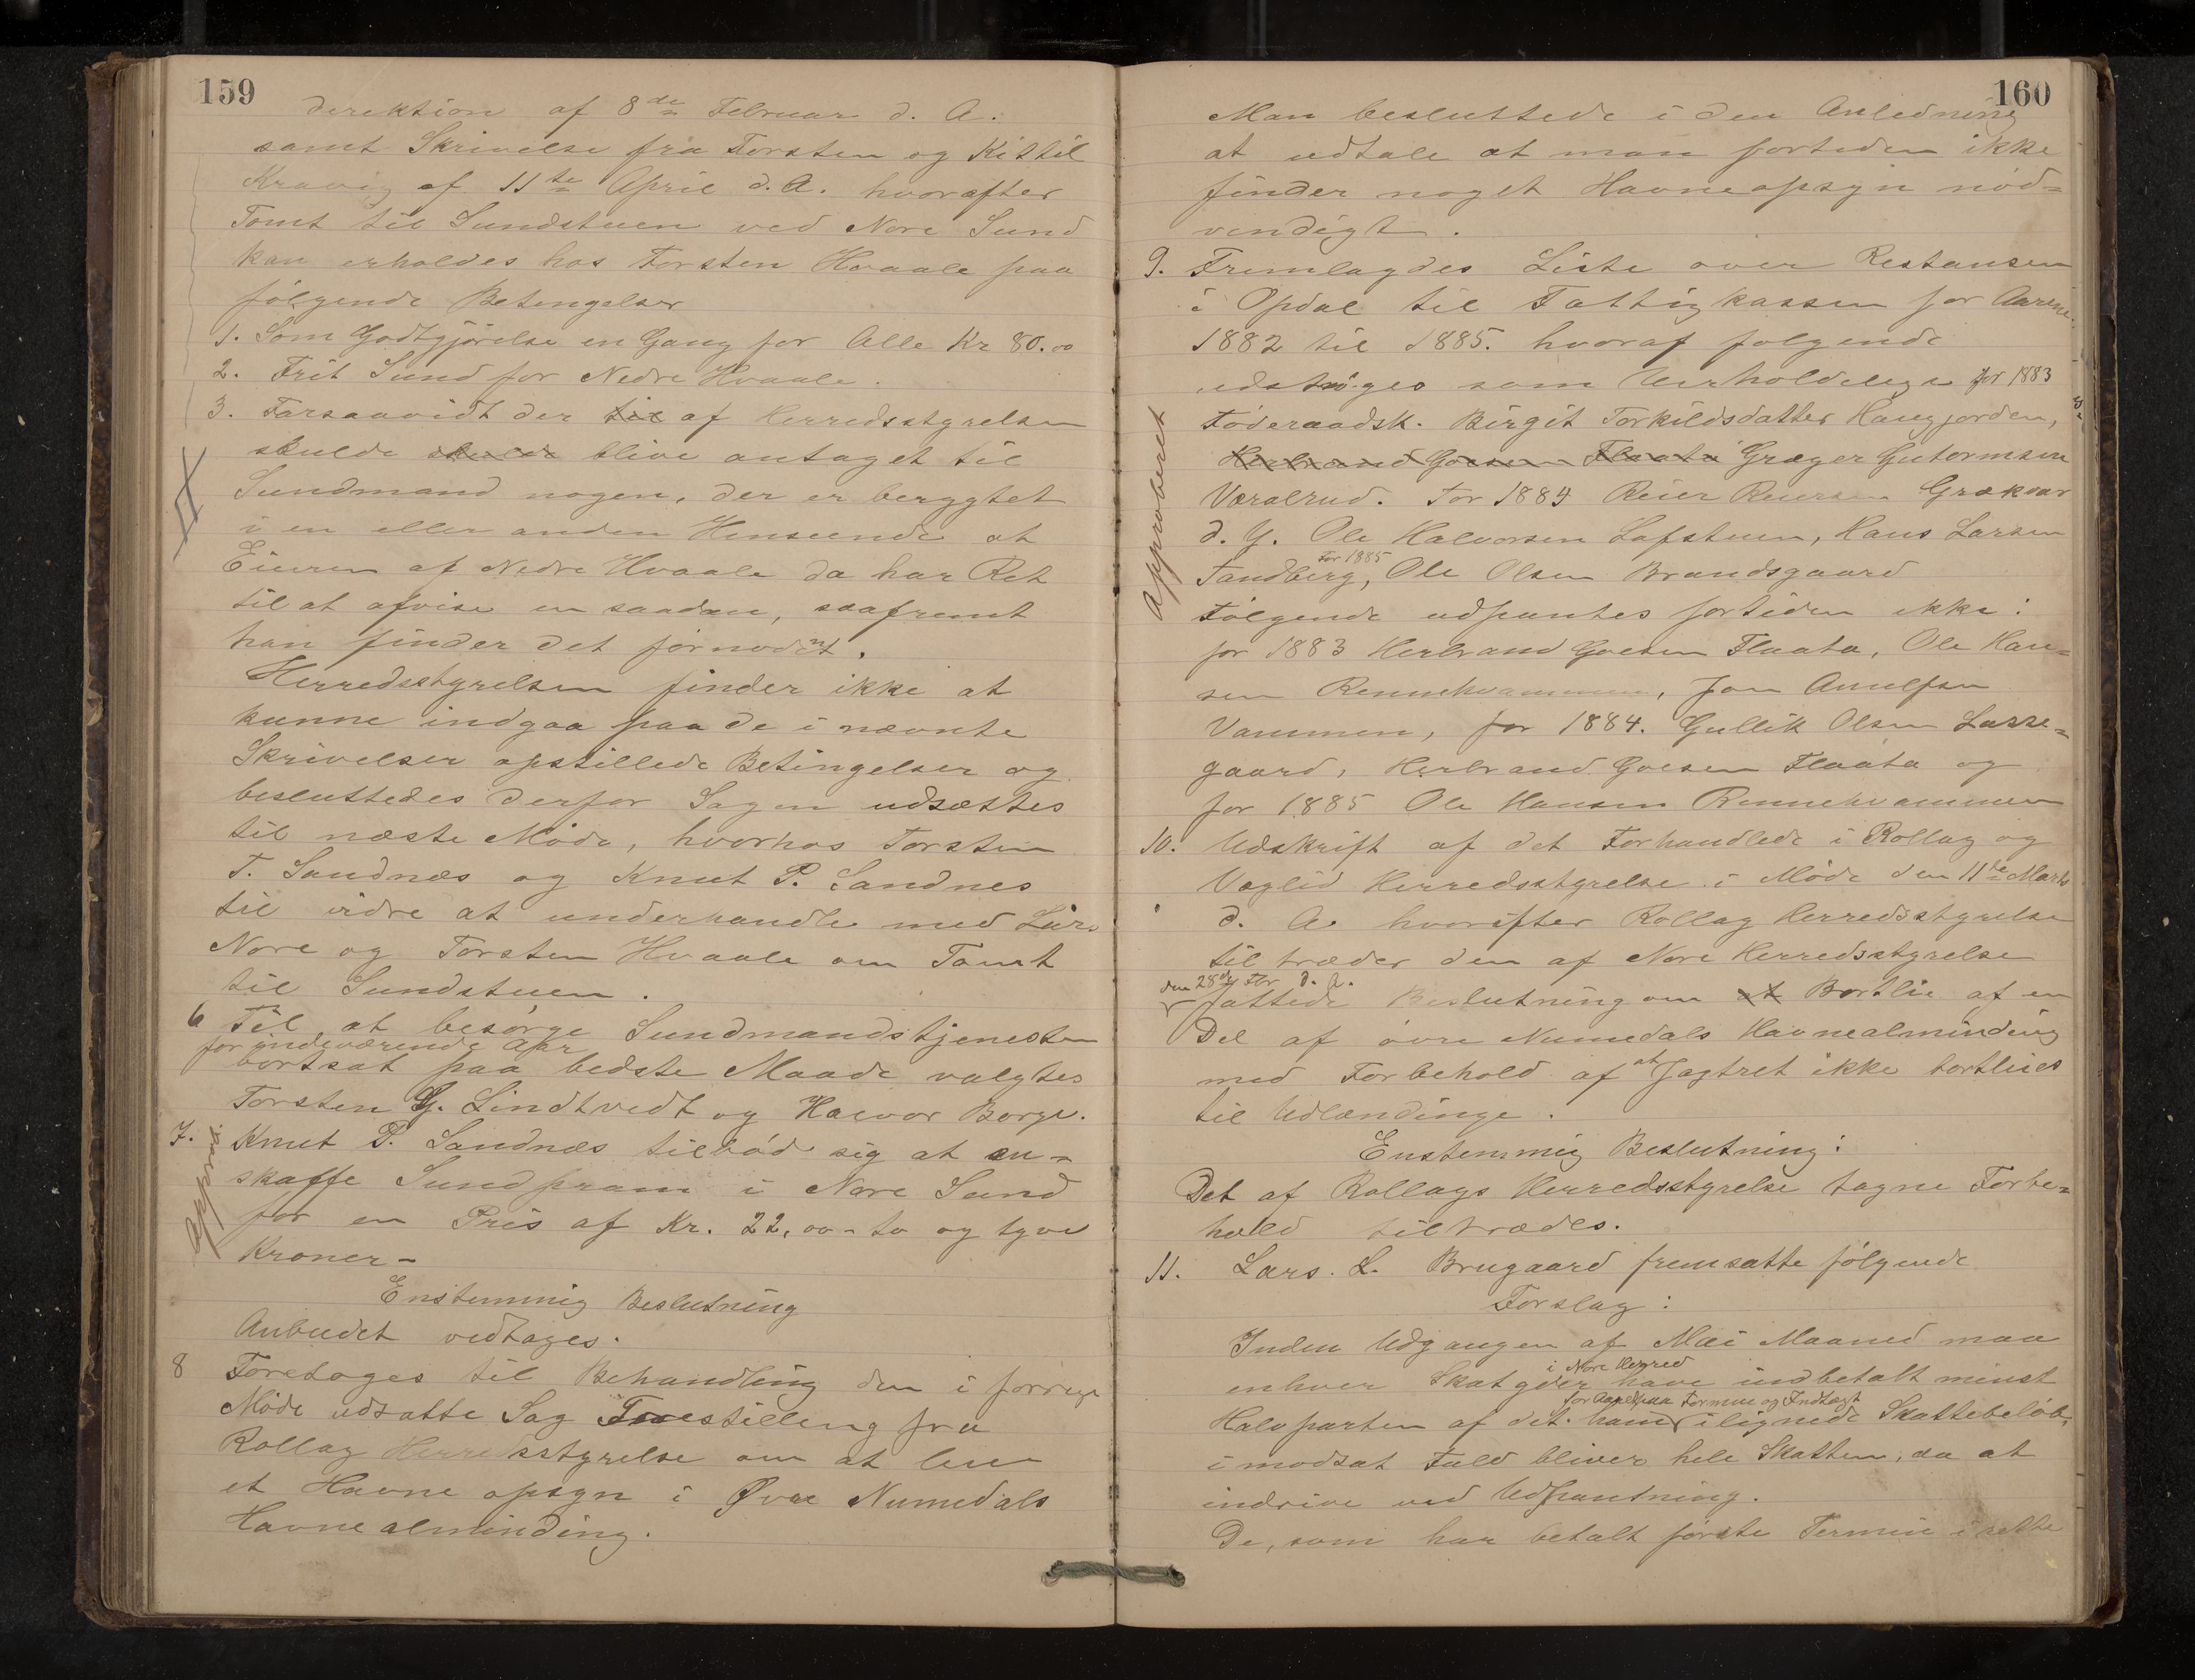 159
Derektion af 8de Februar d. A.
samt Skrivelse fra Torsten og Kittil
Kravig af 11te April d. A. hvorefter
Tomt til Sundstuen ved Nore Sund
kan erholdes hos Torsten Hvaale paa
følgende Betingelser
1. Som Godtgjørelse en Gang for Alle Kr 80.00
2. Frit Sund for Nedre Hvaale.
3. Forsaavidt der til af Herredsstyrelsen
skulde skulde blive antaget til
Sundmand nogen, der er berygtet
i en eller anden Henseende at
Eieren af Nedre Hvaale da har Ret
til at afvise en saadan, saafremt
han finder det fornødent.
Herredsstyrelsen finder ikke at
kunne indgaa paa de i nævnte
Skrivelser opstillede Betingelser og
besluttedes derfor Sagen udsættes
til næste Møde, hvorhos Torsten
T. Sandnæs og Knut P. Sandnes
til videre at underhandle med Lars
Nore og Torsten Hvaale om Tomt
til Sundstuen.
6 Til at besørge Sundmandstjenesten
for indeværende Aar
bortsat paa bedste Maade valgtes
Torsten G. Lindtvedt og Halvor Borge.
7. Knut P. Sandnæs tilbød sig at an-
Approb.
skaffe Sundpram i Nore Sund
for en Pris af Kr. 22,00 - to og tyve
Kroner -
Enstemmig Beslutning
Anbudet vedtages.
8 Foretoges til Behandling den i forrige
Møde udsatte Sag Forestilling fra
Rollag Herredsstyrelse om at leie
et Havne opsyn i Øvre Numedals
Havnealminding.
160
Man besluttede i den Anledning
at udtale at man fortiden ikke
finder noget Havneopsyn nød=
vendigt.
9. Fremlagdes Liste over Restansen
i Opdal til Fattigkassen for Aarene
1882 til 1885. hvoraf følgende
udstrøges som Uerholdelige for 1883
Approberet
Føderaadsk. Birgit Torkildsdatter Haugjorden,
Herbrand Goesen Flaata Græger Gutormsen
Væralrud. For 1884 Reier Reiersen Grækvar
d. Y. Ole Halvorsen Lofstuen, Hans Larsen
For 1885
Tandberg, Ole Olsen Brandsgaard
Følgende udpantes fortiden ikke:
for 1883 Herbrand Goesen Flaata, Ole Han=
sen Rennehvammen, Jon
Vammen, for 1884. Gullik Olsen Lasse=
gaard, Herbrand Goesen Flaata og
for 1885 Ole Hansen Rennehvammen
10. Udskrift af det Forhandlede i Rollag og
Veglid Herredsstyrelse i Møde den 11te Marts
d. A. hvorefter Rollag Herredsstyrelse
tiltræder den af Nore Herredsstyrelse
den 28de Fbr d. A.
fattede Beslutning om at Bortlie af en
Del af øvre Numedals Havnealminding
med Forbehold af at Jagtret ikke bortlies
til Udlændinge.
Enstemmig Beslutning:
Det af Rollags Herredsstyrelse tagne Forbe=
hold tiltrædes.
11. Lars. L. Brugaard fremsatte følgende
Forslag:
Inden Udgangen af Mai Maaned maa
i Nore Herred
enhver Skatyder have indbetalt minst
for Aaret paa Formue og Indtægt
Halvparten af det ham ilignede Skattebeløb,
i modsat Fald bliver hele Skatten, da at
indrive ved Udpantning.
De, som har betalt første Termin i rette